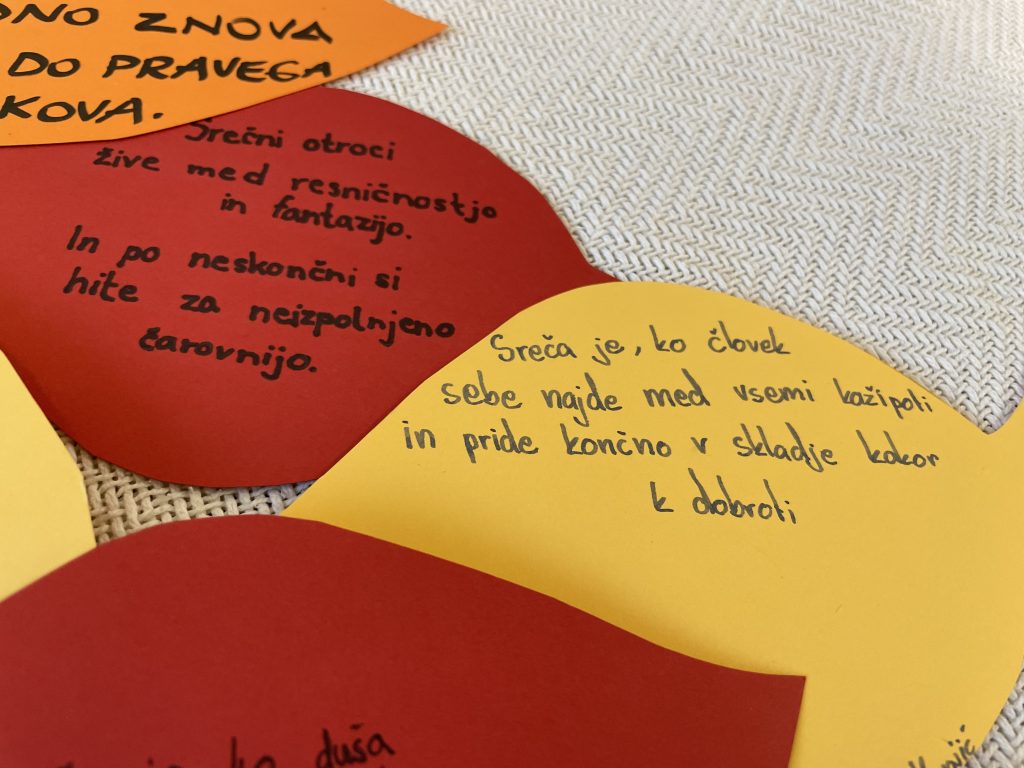 ZNOVA
DO PRAVEGA
Srečni otroci
žive med resničnostjo
in fantazijo.
In po neskončni si
hite za neizpolnjeno
čarovnijo.
Sreča je, ko človek
sebe najde med vsemi kažipoti
in pride končno v skladje kakor
k dobroti
ko duša